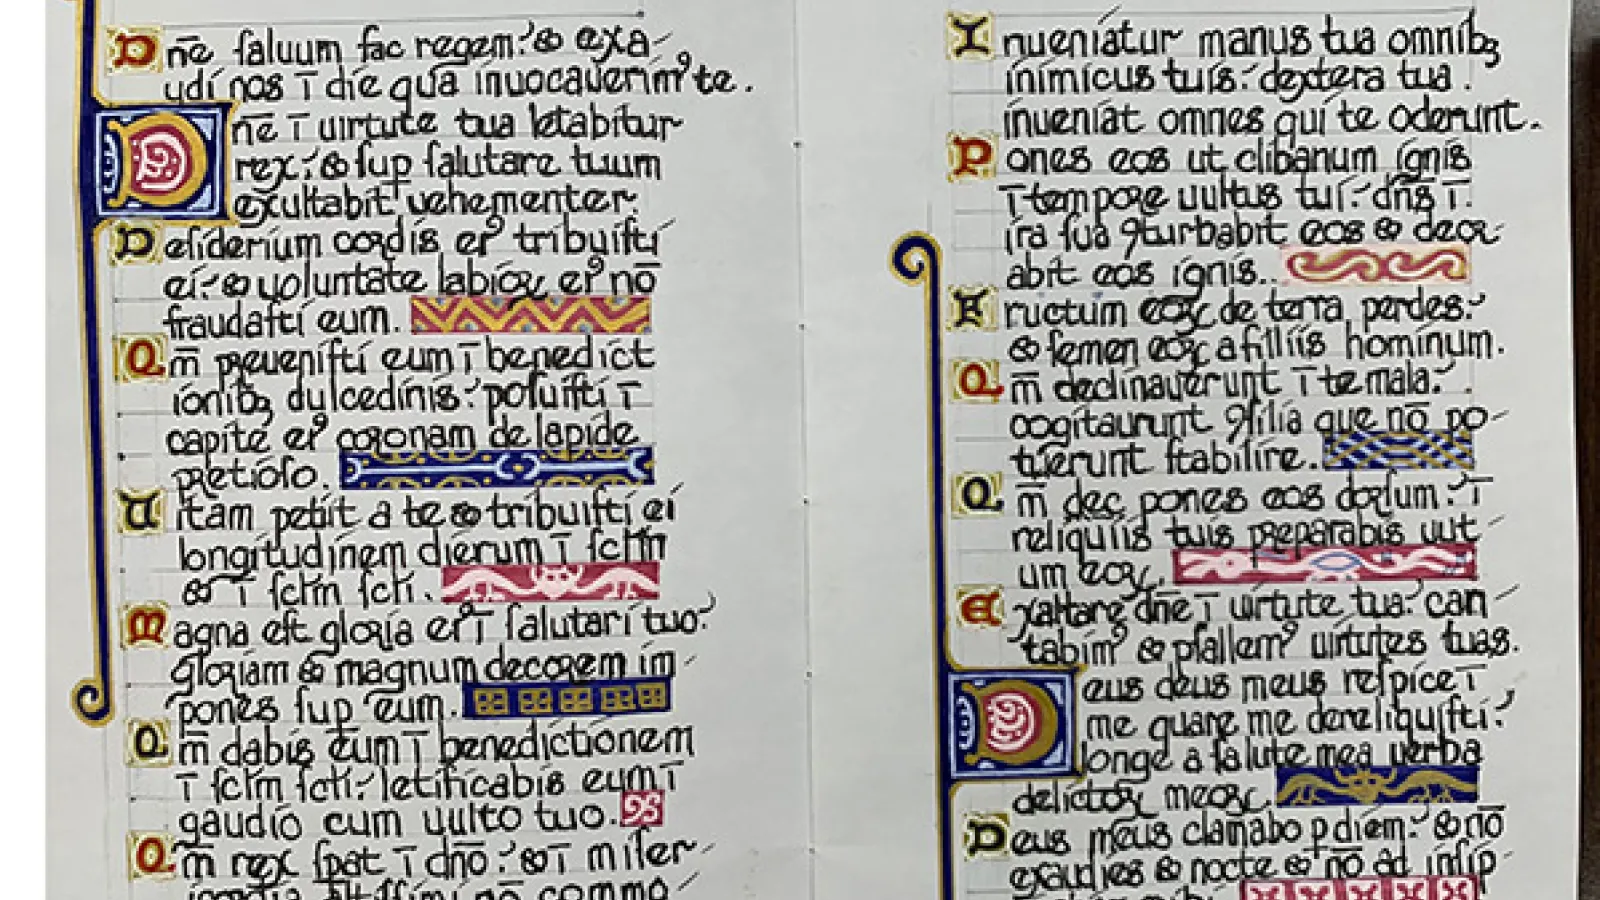 Dn̄e ſaluum fac regem: & exa-
udi nos ī die qua inuocauerim᾿ te.
Dn̄e ī uirtute tua letabitur
rex: & ſup ſalutare tuum
exultabit uehementer.
Deſiderium cordis ei᾿ tribuiſti
ei: & uoluntate labioꝝ ei᾿ nō
fraudaſti eum.
Qm̄ preueniſti eum ī benedict
ionibꝫ dulcedinis: poſuiſti ī
capite ei᾿ coronam de lapide
pretioſo.
Uitam petiit a te & tribuiſti ei
longitudinem dierum ī ſclm̄
& ī ſclm̄ ſcli.
Magna eſt gloria ei᾿ ī ſalutari tuo:
gloriam & magnum decorem im-
pones ſup eum.
Qm̄ dabis eum ī benedictionem
ī ſclm̄ ſcli: letificabis eum ī
gaudio cum uulto tuo.
Qm̄ rex ſpat ī dn̄o: & ī miſer-
icordia altiſſimi nō commo-
Inueniatur manus tua omnibꝫ
inimicus tuis: dextera tua
inueniat omnes qui te oderunt.
Pones eos ut clibanum ignis
ī tempore uultus tui: dn̄s ī
ira ſua ꝯturbabit eos & deuor-
abit eos ignis.
Fructum eoꝝ de terra perdes:
& ſemen eoꝝ a filliis hominum.
Qm̄ declinauerunt ī te mala:
cogitaurunt ꝯſilia que nō po-
tuerunt ſtabilire.
Qm̄ dec pones eos dorſum: ī
reliquiis tuis preparabis uut-
um eoꝝ.
Exaltare dn̄e ī uirtute tua: can-
tabim᾿ & pſallem᾿ uirtutes tuas.
Deus deus meus reſpice ī
me quare me dereliquiſti:
longe a ſalute mea uerba
delictoꝝ meoꝝ.
Deus meus clamabo p diem: & nō
exaudies & nocte & nō ad inſip-